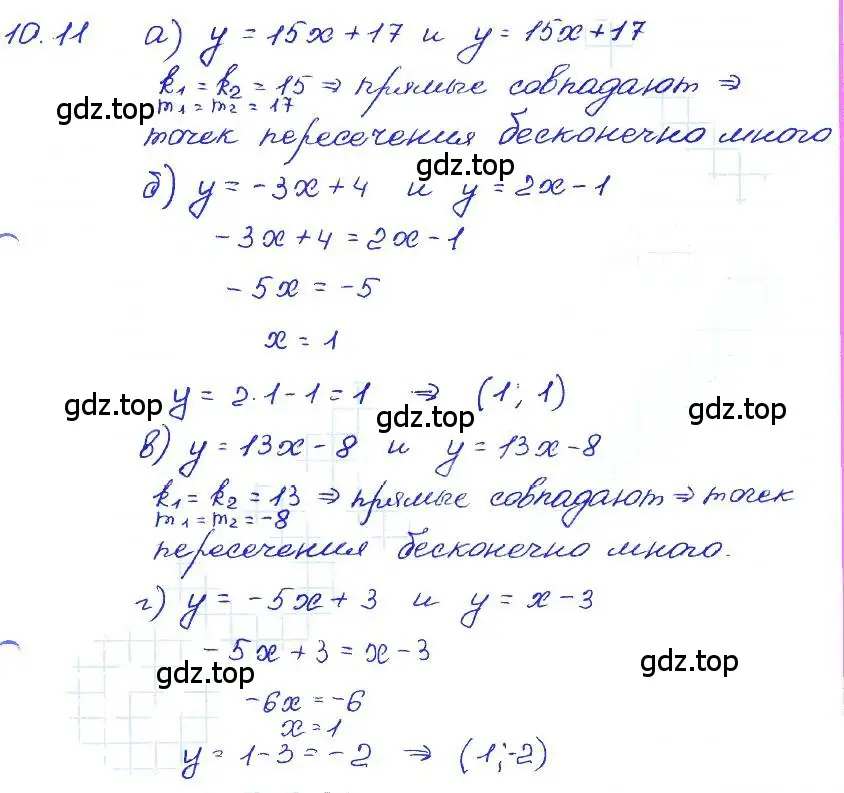 10.11 а) y = 15x + 17 и y = 15x + 17
k₁ = k₂ = 15 ⇒ прямые совпадают ⇒
m₁ = m₂ = 17
gdz.top
точек пересечения бесконечно много
gdz.top
б) y = -3x + 4 и y = 2x - 1
-3x + 4 = 2x - 1
-5x = -5
x = 1
gdz.top y = 2·1 - 1 = 1 ⇒ (1; 1) gdz.top
gdz.top
в) y = 13x - 8 и y = 13x - 8
k₁ = k₂ = 13 ⇒ прямые совпадают ⇒ точек
m₁ = m₂ = -8
пересечения бесконечно много.
г) y = -5x + 3 и y = x - 3
-5x + 3 = x - 3
gdz.top gdz.top
-6x = -6
x = 1
y = 1 - 3 = -2 ⇒ (1; -2)